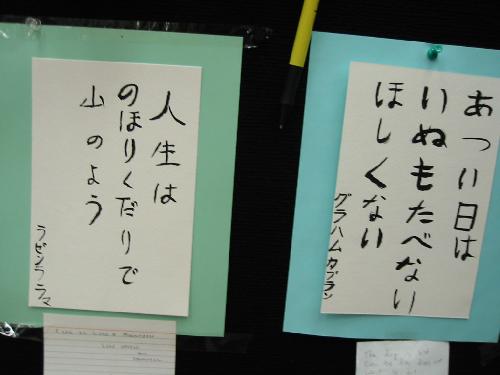 人生は
のほりくだりで
山のよう
ラビンララマ
あつい日は
いぬもたべない
ほしくない
グラハムカプラン